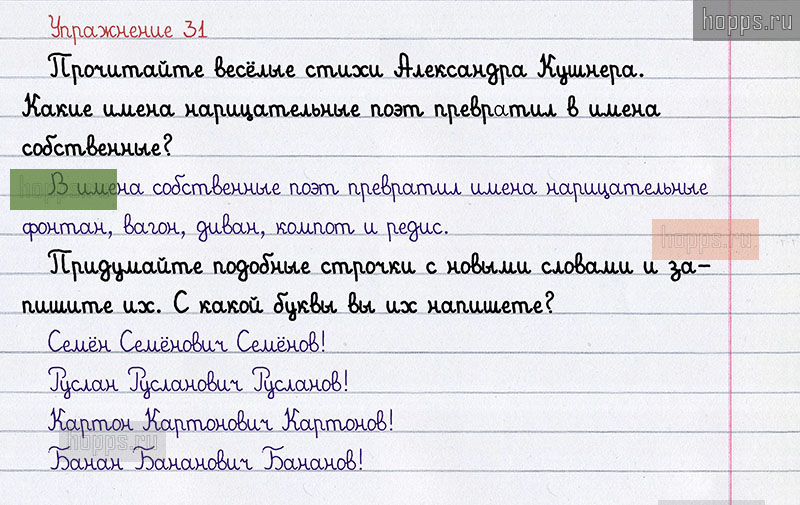 hopps.ru
Упражнение 31
Прочитайте весёлые стихи Александра Кушнера.
Какие имена нарицательные поэт превратил в имена
собственные?
В имена собственные поэт превратил имена нарицательные
фонтан, вагон, диван, компот и редис.
hopps.ru
Придумайте подобные строчки с новыми словами и за-
пишите их. С какой буквы вы их напишете?
Семён Семёнович Семёнов!
Руслан Русланович Русланов!
Картон Картонович Картонов!
hopps.ru
Банан Бананович Бананов!